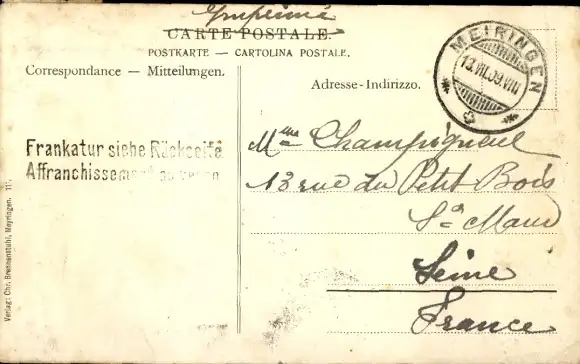 Imprimé
CARTE POSTALE.
POSTKARTE — CARTOLINA POSTALE.
Correspondance — Mitteilungen.
Adresse - Indirizzo.
MEIRINGEN
13.VII.09.VIII
Frankatur siehe Rückseite
Affranchissement au verso
Mme Champigneul
13 rue du Petit Bois
St Maur
Seine
France
Verlag: Chr. Brennerstuhl, Meyringen.